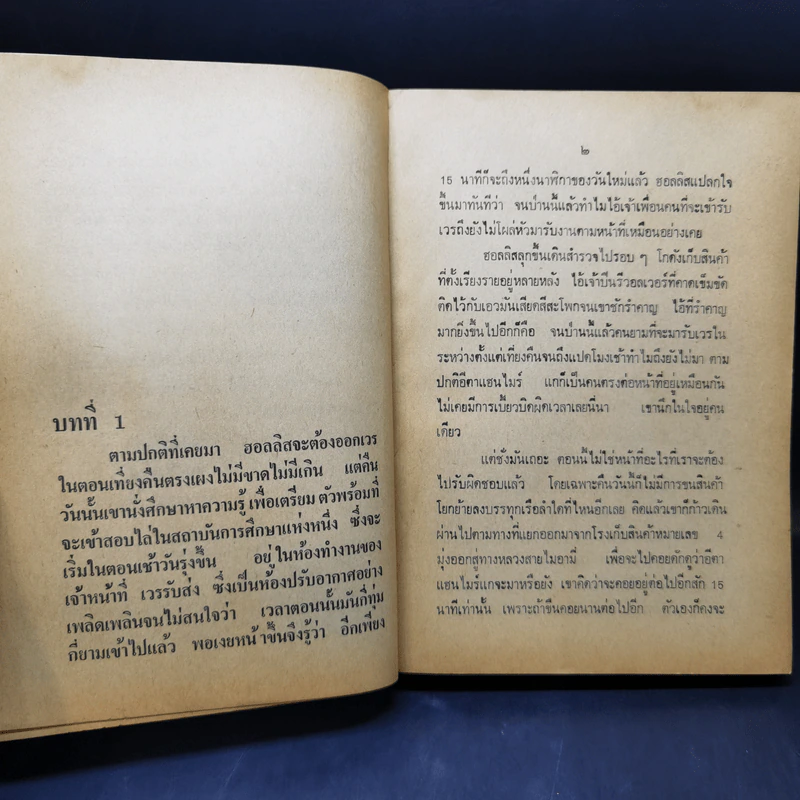 บทที่ 1
ตามปกติที่เคยมา ฮอลลิสจะต้องออกเวร
ในตอนเที่ยงคืนตรงเผงไม่มีขาดไม่มีเกิน แต่คืน
วันนั้นเขานั่งศึกษาหาความรู้ เพื่อเตรียม ตัวพร้อมที่
จะเข้าสอบไล่ในสถาบันการศึกษาแห่งหนึ่ง ซึ่งจะ
เริ่มในตอนเช้าวันรุ่งขึ้น อยู่ในห้องทำงานของ
เจ้าหน้าที่ เวรรับส่ง ซึ่งเป็นห้องปรับอากาศอย่าง
เพลิดเพลินจนไม่สนใจว่า เวลาตอนนั้นมันกี่ทุ่ม
กี่ยามเข้าไปแล้ว พอเงยหน้าขึ้นจึงรู้ว่า อีกเพียง
๒
15 นาทีก็จะถึงหนึ่งนาฬิกาของวันใหม่แล้ว ฮอลลิสแปลกใจ
ขึ้นมาทันทีว่า จนป่านนี้แล้วทำไมไอ้เจ้าเพื่อนคนที่จะเข้ารับ
เวรถึงยังไม่โผล่หัวมารับงานตามหน้าที่เหมือนอย่างเคย
ฮอลลิสลุกขึ้นเดินสำรวจไปรอบ ๆ โกดังเก็บสินค้า
ที่ตั้งเรียงรายอยู่หลายหลัง ไอ้เจ้าปืนรีวอลเวอร์ที่คาดเข็มขัด
ติดไว้กับเอวมันเสียดสีสะโพกจนเขาชักรำคาญ ไอ้ที่รำคาญ
มากยิ่งขึ้นไปอีกก็คือ จนป่านนี้แล้วคนยามที่จะมารับเวรใน
ระหว่างตั้งแต่เที่ยงคืนจนถึงแปดโมงเช้าทำไมถึงยังไม่มา ตาม
ปกติอีตาแฮนไมร์ แกก็เป็นคนตรงต่อหน้าที่อยู่เหมือนกัน
ไม่เคยมีการเบี้ยวบิดผิดเวลาเลยนี่นา เขานึกในใจอยู่คน
เดียว
แต่ช่างมันเถอะ ตอนนี้ไม่ใช่หน้าที่อะไรที่เราจะต้อง
ไปรับผิดชอบแล้ว โดยเฉพาะคืนวันนี้ก็ไม่มีการขนสินค้า
โยกย้ายลงบรรทุกเรือลำใดที่ไหนอีกเลย คิดแล้วเขาก็ก้าวเดิน
ผ่านไปตามทางที่แยกออกมาจากโรงเก็บสินค้าหมายเลข 4
มุ่งออกสู่ทางหลวงสายไมอามี่ เพื่อจะไปคอยดักดูว่าอีตา
แฮนไมร์แกจะมาหรือยัง เขาคิดว่าจะคอยอยู่ต่อไปอีกสัก 15
นาทีเท่านั้น เพราะถ้าขืนคอยนานต่อไปอีก ตัวเองก็คงจะ